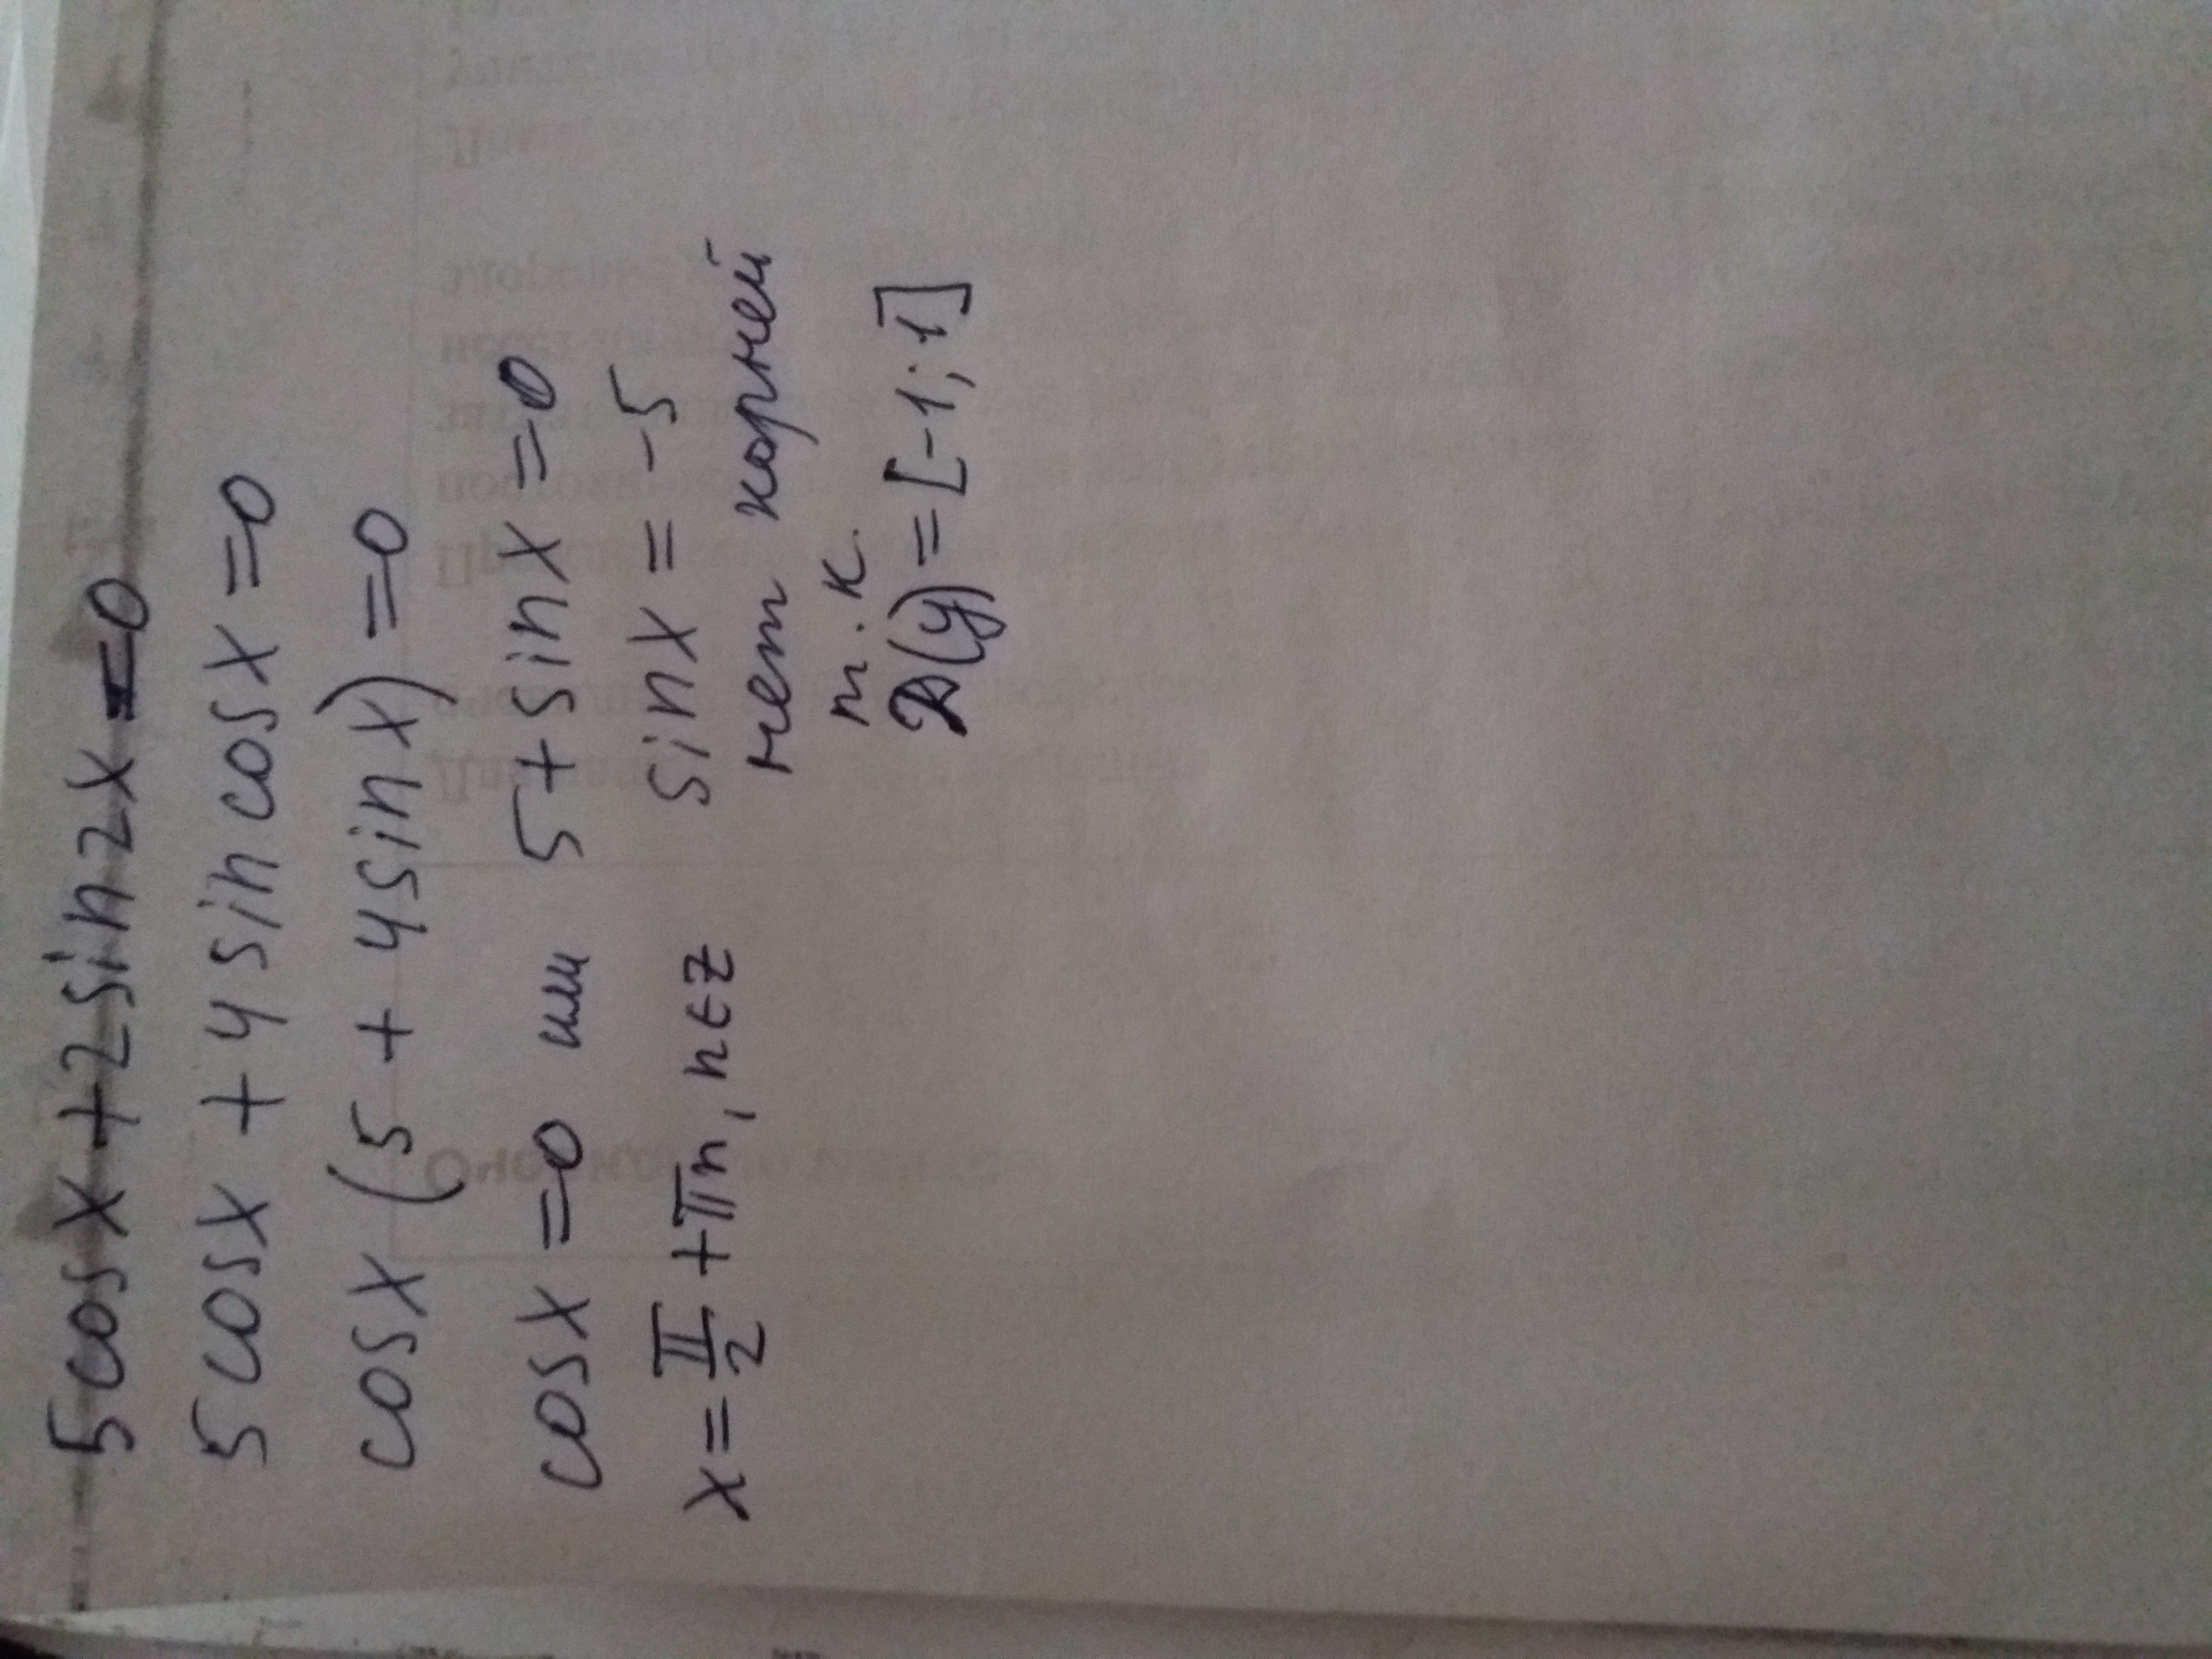 5cosx+2sin2x=0
5cosx+4sincosx=0
cosx(5+4sinx)=0
cosx=0 или 5+sinx=0
x=π/2+πn, n∈Z sinx=-5
нет корней
т.к.
D(y)=[-1;1]